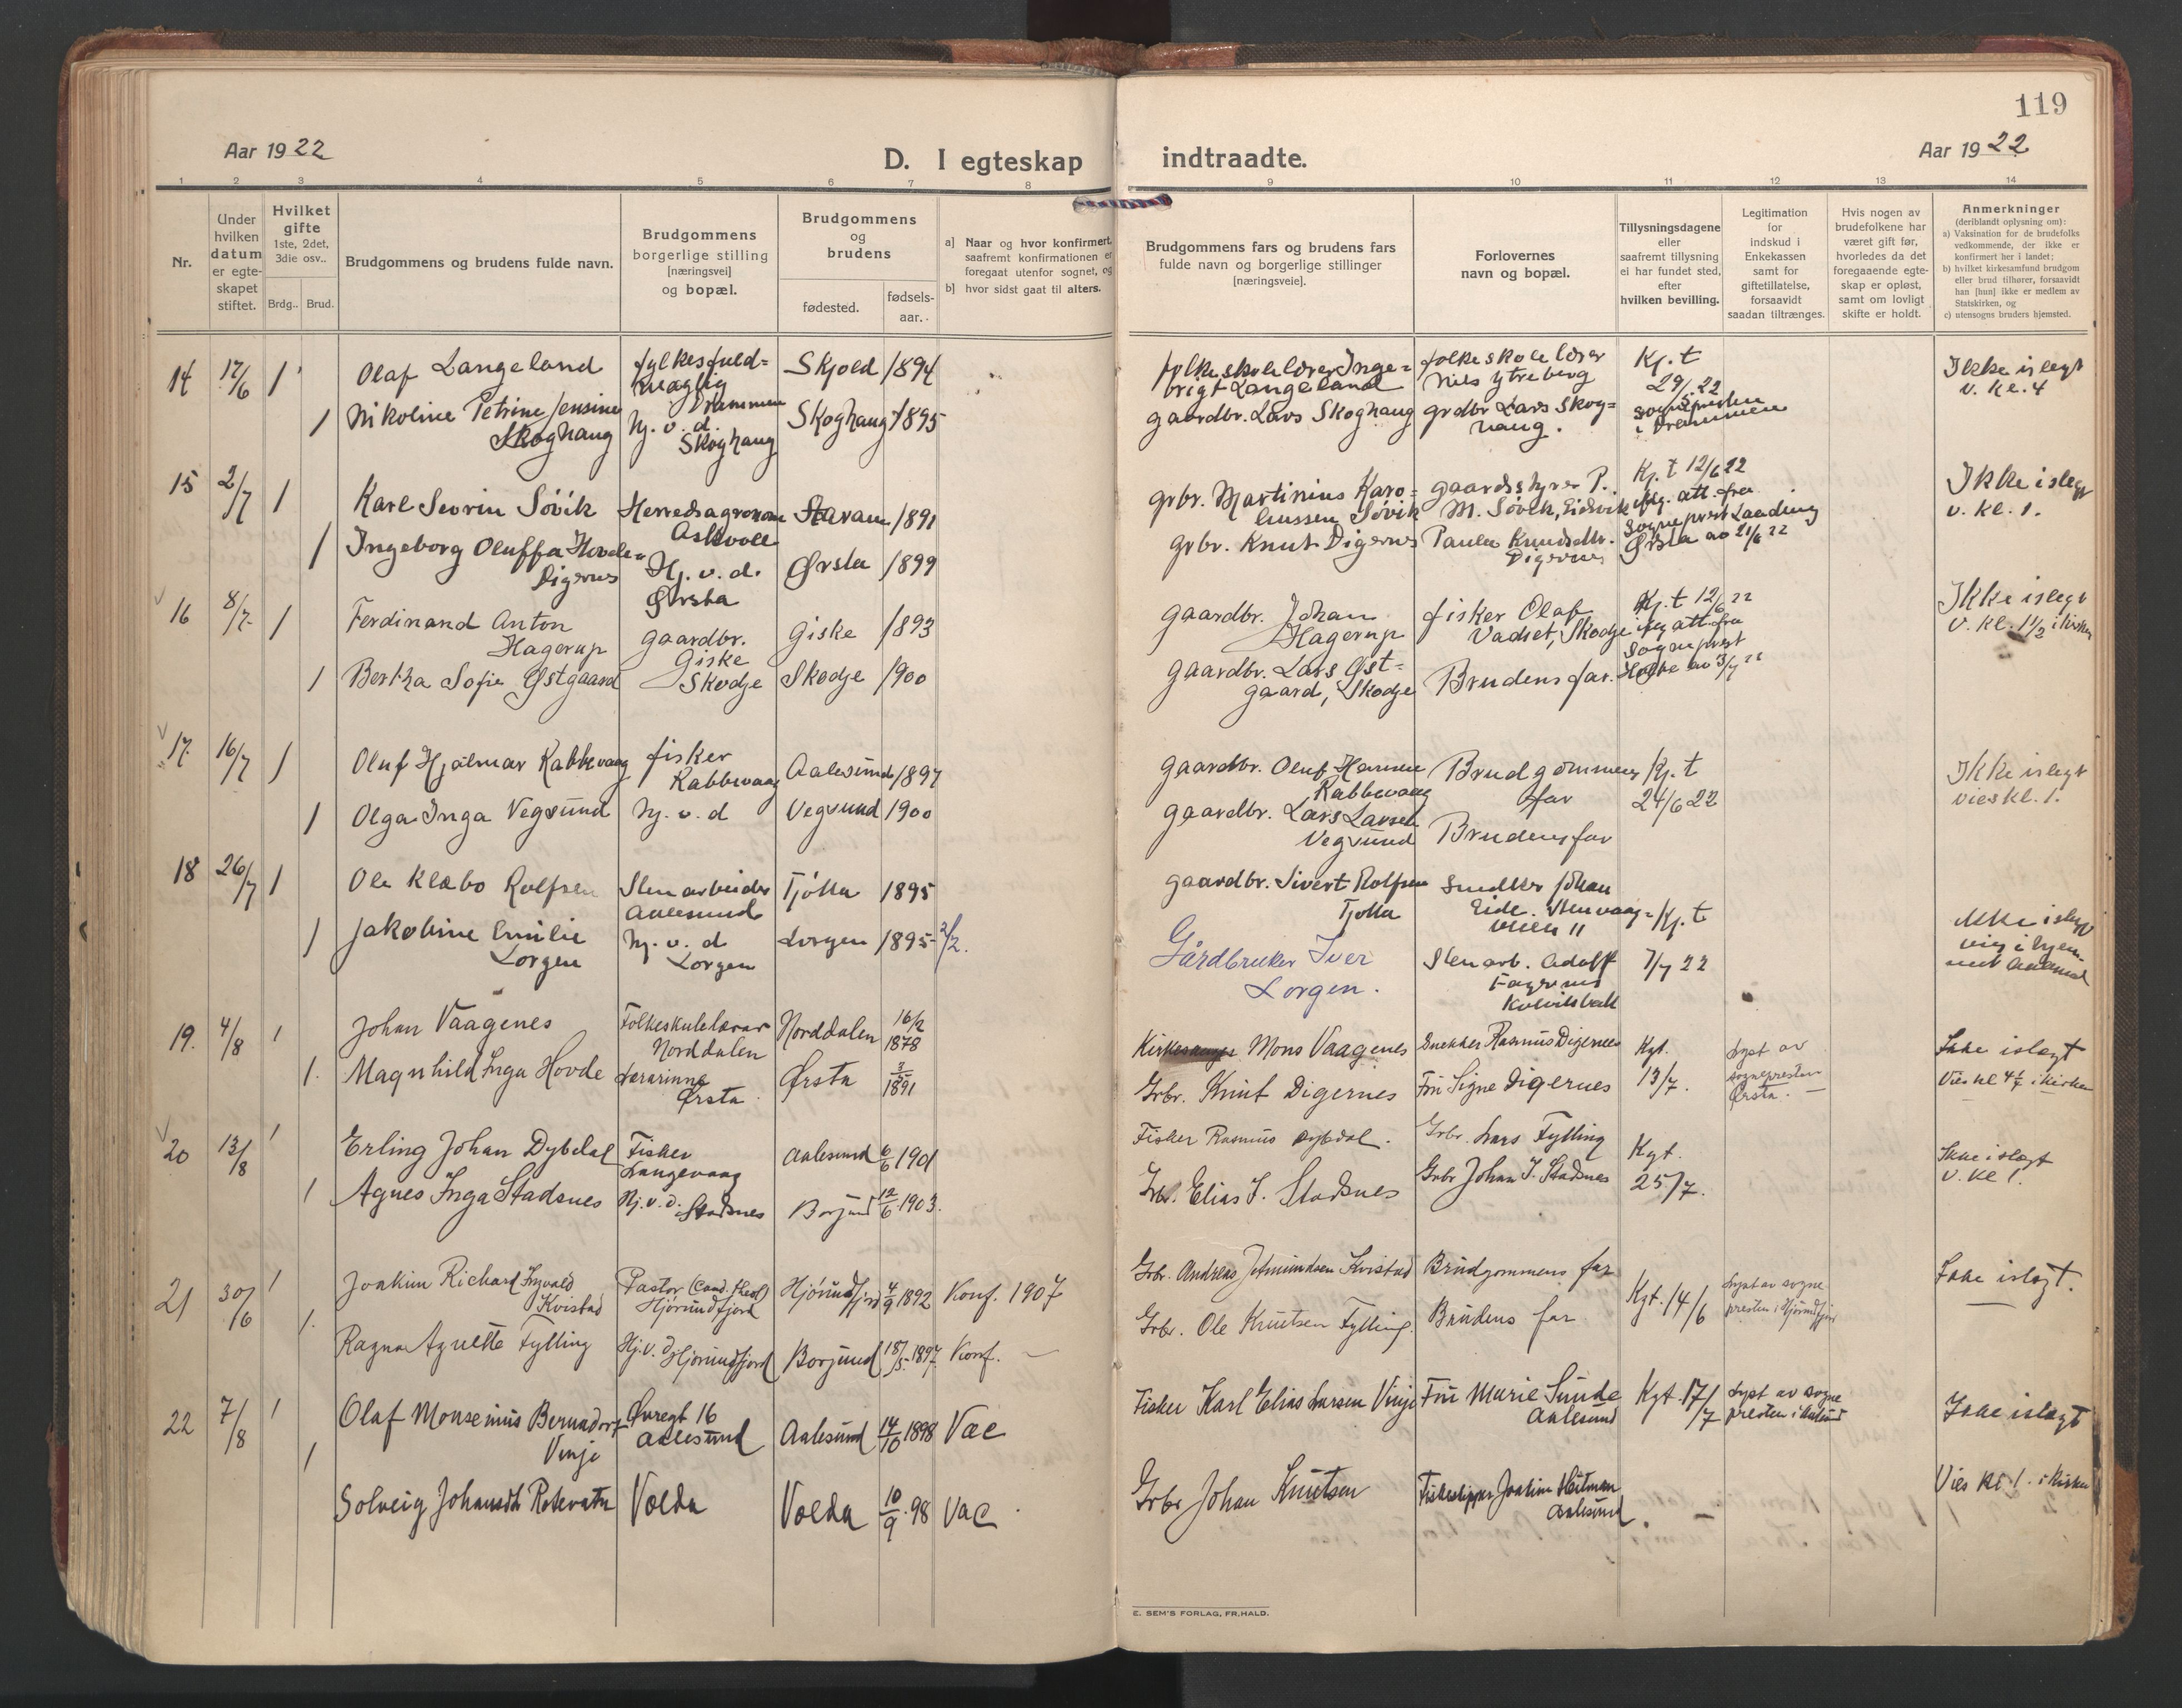 119
Aar 1922
D. I egteskap indtraadte.
Aar 1922
1 2 3 4 5 6 7 8 9 10 11 12 13 14
Nr.
Under hvilken datum er egteskapet stiftet.
Hvilket gifte 1ste, 2det, 3die osv..
Brdg.. Brud.
Brudgommens og brudens fulde navn.
Brudgommens borgerlige stilling [næringsvei] og bopæl.
Brudgommens og brudens
fødested.
fødsels-aar.
a] Naar og hvor konfirmert, saafremt konfirmationen er foregaat utenfor sognet, og
b] hvor sidst gaat til alters.
Brudgommens fars og brudens fars fulde navn og borgerlige stillinger [næringsveie].
Forlovernes navn og bopæl.
Tillysningsdagene eller saafremt tillysning ei har fundet sted, efter hvilken bevilling.
Legitimation for indskud i Enkekassen samt for giftetillatelse, forsaavidt saadan tiltrænges.
Hvis nogen av brudefolkene har været gift før, hvorledes da det foregaaende egteskap er opløst, samt om lovligt skifte er holdt.
Anmerkninger (deriblandt oplysning om):
a) Vaksination for de brudefolks vedkommende, der ikke er konfirmert her i landet;
b) hvilket kirkesamfund brudgom eller brud tilhører, forsaavidt han [hun] ikke er medlem av Statskirken, og
c) utensogns bruders hjemsted.
14 17/6 1 Olaf Langeland fylkesfuldmægtig Drammen Skjold 1894 folkeskolelærer Ingebrigt Langeland folkeskolelærer Nils Ytreberg Kj. t 29/5 22 sognepresten i Drammen Ikke i slegt v. kl. 4
1 Nikoline Petrine Jensine Skoghaug hj. v. d. Skoghaug Skoghaug 1895 gaardbr. Lars Skoghaug grdbr Lars Skoghaug.
15 2/7 1 Karl Sevrin Søvik Herredsagronom Askvoll 1891 grbr. Martinius Karolinussen Søvik gaardsstyrer P. M. Søvik, Eidsvik Kj. t 12/6 22 iflg. att. fra sogneprest Laading Ørsta av 21/6 22 Ikke i slegt v. kl. 1.
1 Ingeborg Oluffa Hovde-Digernes Hj. v. d. Ørsta Ørsta 1899 grbr. Knut Digernes Paula Knudsdtr. Digernes
16 8/7 1 Ferdinand Anton Hagerup gaardbr. Giske Giske 1893 gaardbr. Johan Hagerup fisker Olaf Vadset, Skodje Kj. t 12/6 22 iflg att. fra sogneprest av 3/7 22 Ikke i slegt v. kl. 1 1/2 i kirken
1 Bertha Sofie Østgaard Skodje Skodje 1900 gaardbr. Lars Østgaard, Skodje Brudens far.
17. 16/7 1 Oluf Hjalmar Rabbevaag fisker Rabbevaag Aalesund 1897 gaardbr. Oluf Hansen Rabbevaag Brudgommens far Kj. t 24/6 22 Ikke i slegt vies kl. 1.
1 Olga Inga Vegsund hj. v. d Vegsund 1900 gaardbr. Lars Larsen Vegsund Brudens far
18 26/7 1 Ole Klæbo Rolfsen Stenarbeider Aalesund Tjøtta 1895 gaardbr. Sivert Rolfsen Tjøtta Snedker Johan Eide. Stenvaagveien 11 Kj. t 7/7 22 Ikke i slegt
1 Jakobine Emilie Lorgen hj. v. d Lorgen Lorgen 1895 2/2. Gårdbruker Iver Lorgen. Stenarb. Adolf Fagernes
19. 4/8 1 Johan Vaagenes Folkeskulelærar Norddalen Norddalen 16/2 1878 Mons Vaagenes Snekker Rasmus Digernes Kgt. 13/7. Lyst av sognepresten Ørsta. Ikke i slægt Vies kl 4 1/2 i kirken
1. Magnhild Inga Hovde Lærarinne Ørsta Ørsta 3/5 1891 Grbr. Knut Digernes Frk Signe Digernes
20 13/8 1 Erling Johan Dybdal Fisker Langevaag Aalesund 6/6 1901 Fisker Rasmus Dybdal. Grbr. Lars Fylling Kgt. 25/7. Ikke i slægt v. kl 1.
1 Agnes Inga Stadsnes Hj. v. d. Stadsnes Borgund 12/6 1903. Grbr. Elias J. Stadsnes Grbr Johan J. Stadsnes
21 30/6 1 Joakim Richard Ingvald Kvistad Pastor (Cand. theol) Hjørundfjord Hjørundfjord 4/9 1892 Konf. 1907 Grbr. Andreas Kvistad Brudgommens far Kgt. 14/6 Lyst av sognepresten i Hjørundfjord Ikke i slægt.
1. Ragna Agnette Fylling Hj. v. d Hjørundfjord Borgund 18/5 1897. Konf. — Grbr. Ole Knutsen Fylling. Brudens far
22 7/8 1 Olaf Monsenius Bernadorf Vinje Øvregt 16 Aalesund Aalesund 14/10 1898 Vac Fisker Karl Elias Larsen Vinje Frk Marie Sunde Aalesund Kgt. 17/7 Lyst av sognepresten i Aalesund Ikke i slægt
1 Solveig Johansdtr Rotevatn Volda Volda 10/9. 98 Vac Grbr Johan Knutsen Fiskeskipper Joakim Heitman Aalesund. — Vies kl. 1. i kirken
E. SEM'S FORLAG, FR.HALD.